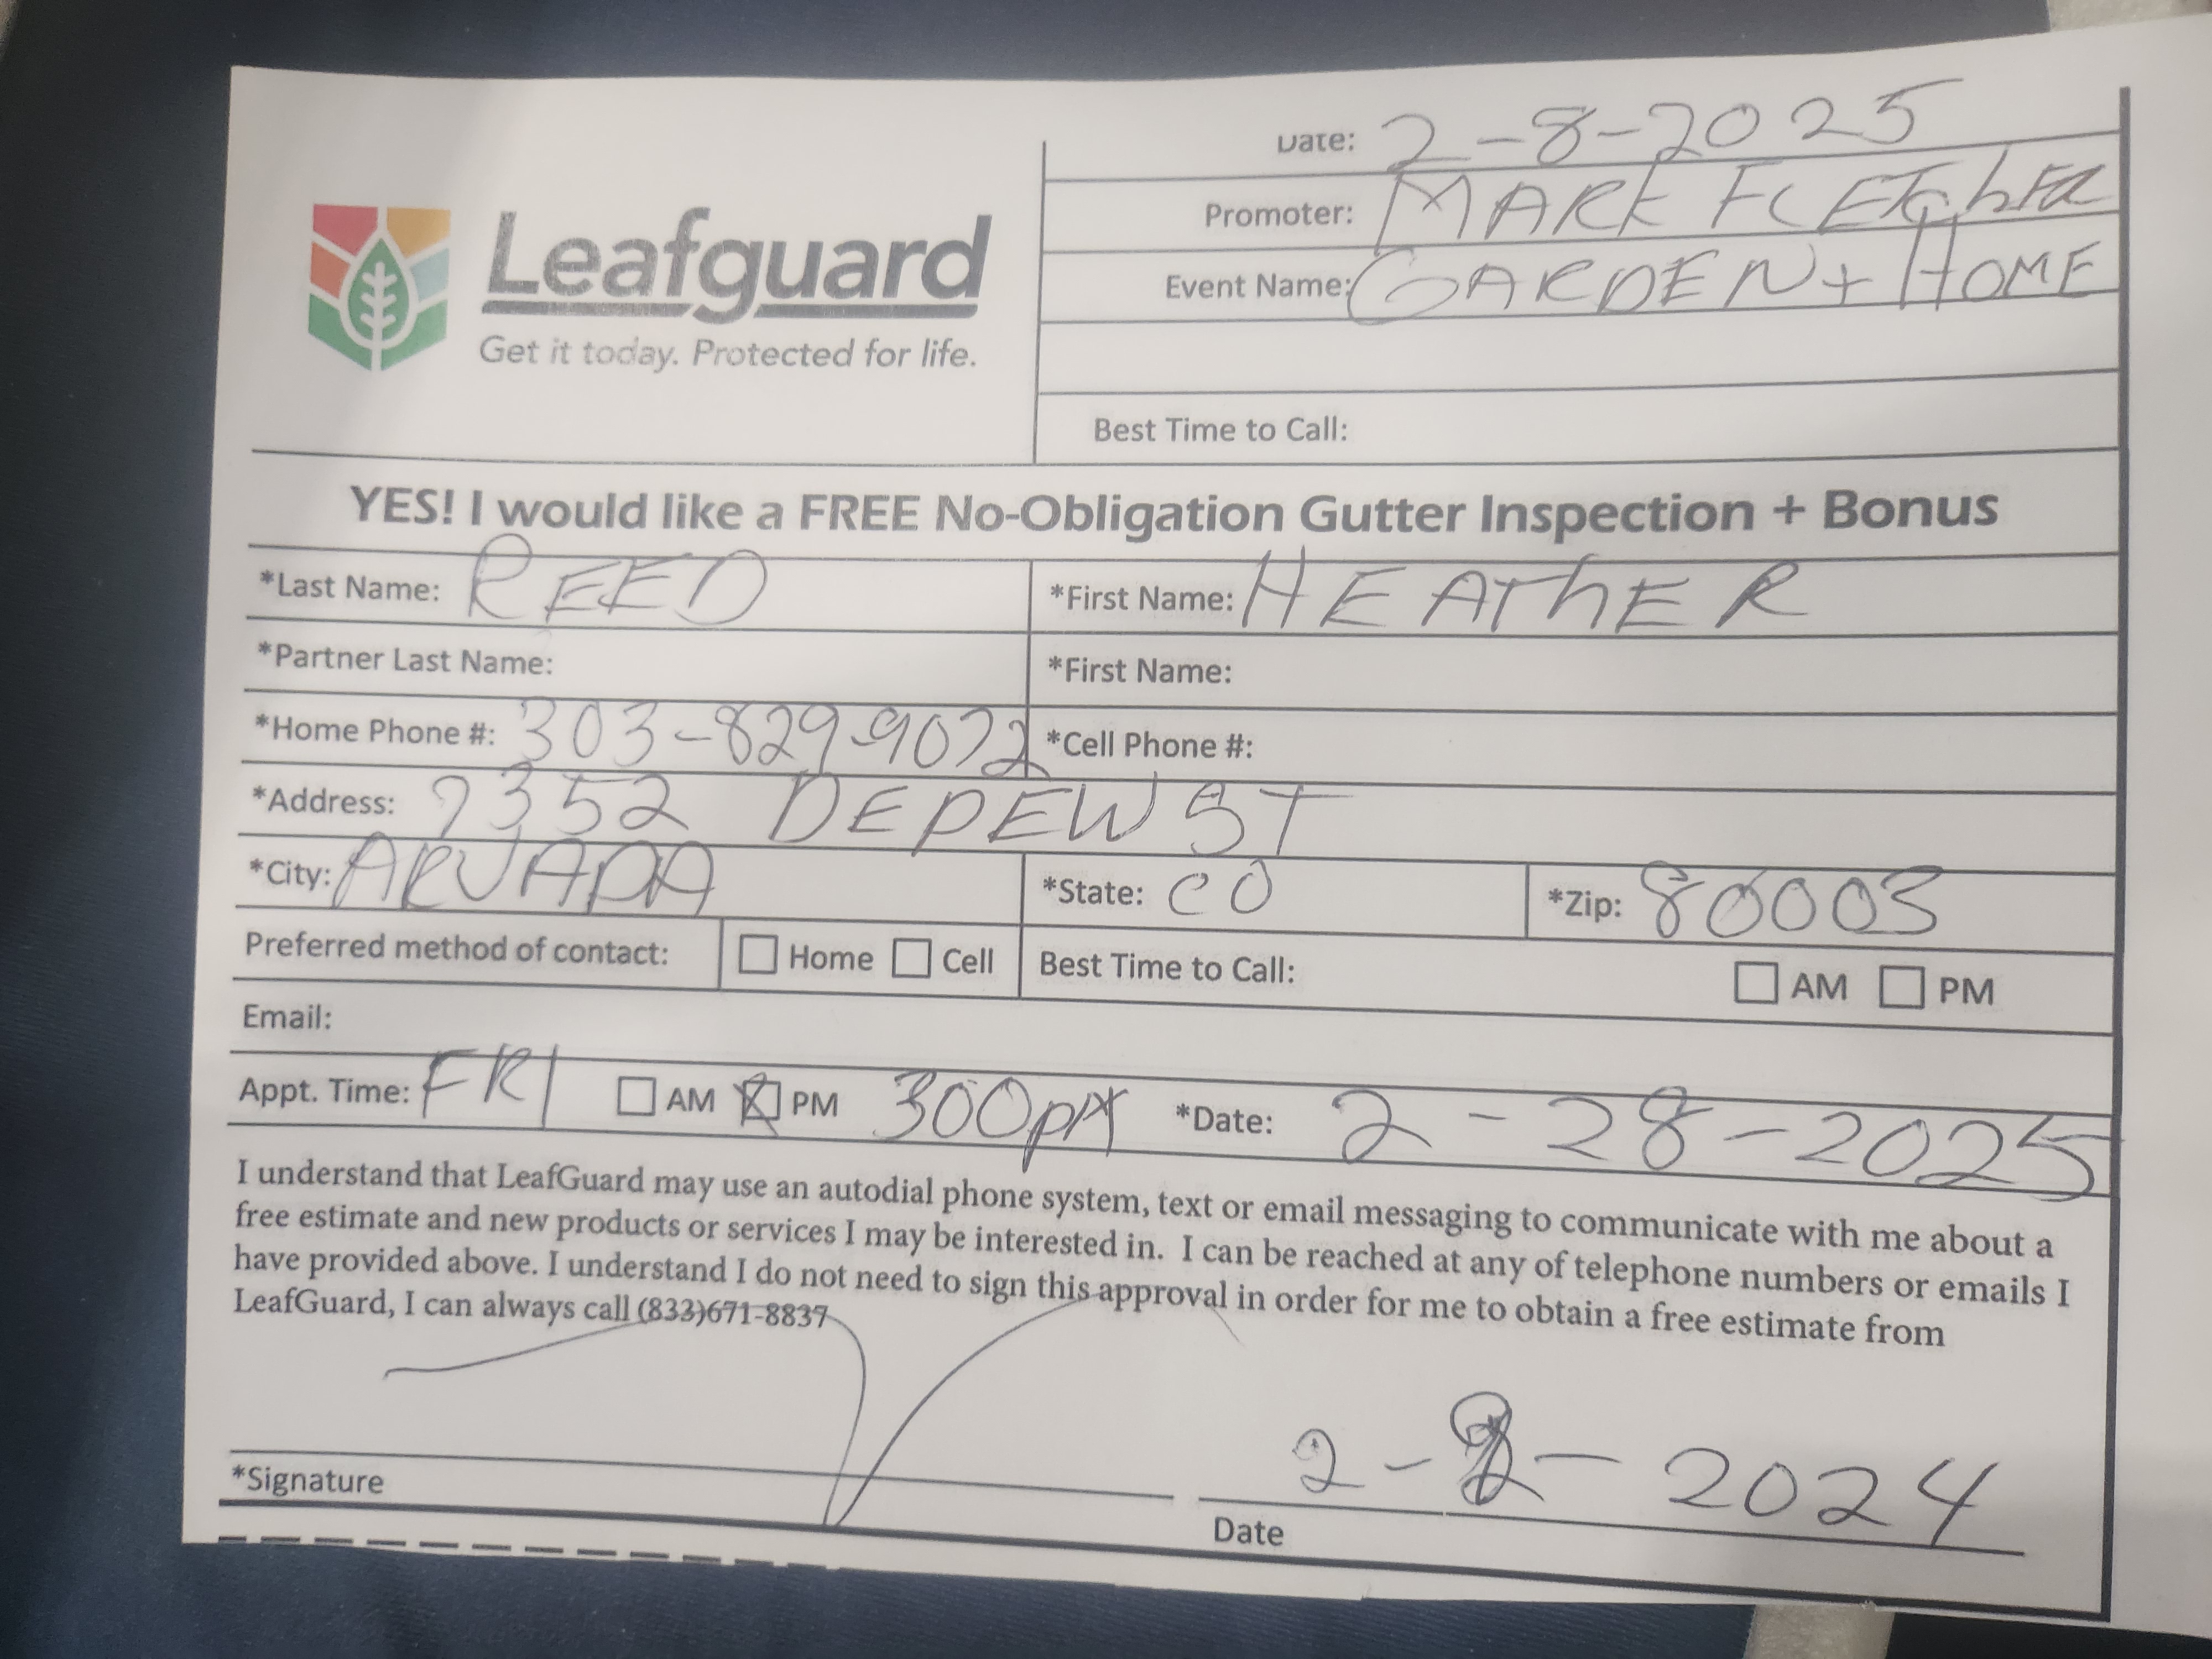 Leafguard
Get it today. Protected for life.
Date: 2-8-2025
Promoter: MARK
Event Name: GARDEN + HOME
Best Time to Call:
YES! I would like a FREE No-Obligation Gutter Inspection + Bonus
*Last Name: REED *First Name: HEATHER
*Partner Last Name: *First Name:
*Home Phone #: 303-829 9022 *Cell Phone #:
*Address: 7352 DEPEW ST
*City: *State: CO *Zip: 80003
Preferred method of contact: Home Cell Best Time to Call: AM PM
Email:
Appt. Time: FRI AM PM 300PM *Date: 2-28-2025
I understand that LeafGuard may use an autodial phone system, text or email messaging to communicate with me about a
free estimate and new products or services I may be interested in. I can be reached at any of telephone numbers or emails I
have provided above. I understand I do not need to sign this approval in order for me to obtain a free estimate from
LeafGuard, I can always call (833)671-8837
2-8-2024
*Signature Date